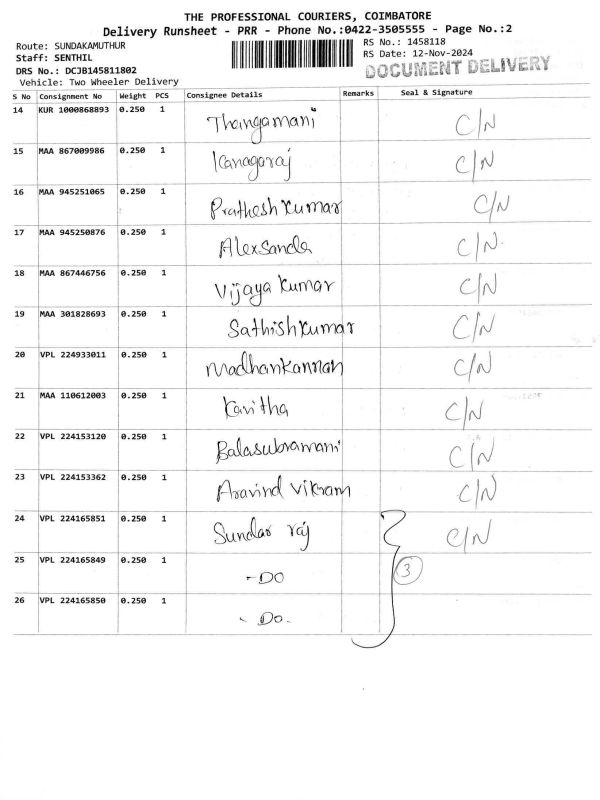 THE PROFESSIONAL COURIERS, COIMBATORE
Delivery Runsheet - PRR - Phone No.:0422-3505555 - Page No.:2
Route: SUNDAKAMUTHUR
RS No.: 1458118
Staff: SENTHIL
RS Date: 12-Nov-2024
DRS No.: DCJB145811802
DOCUMENT DELIVERY
Vehicle: Two Wheeler Delivery
S No Consignment No Weight PCS Consignee Details Remarks Seal & Signature
14 KUR 1000868893 0.250 1 Thangamani C/N
15 MAA 867009986 0.250 1 Kanagaraj C/N
16 MAA 945251065 0.250 1 Prathesh Kumar C/N
17 MAA 945250876 0.250 1 Alexsanda C/N
18 MAA 867446756 0.250 1 Vijaya Kumar C/N
19 MAA 301828693 0.250 1 Sathish Kumar C/N
20 VPL 224933011 0.250 1 Madhankannan C/N
21 MAA 110612003 0.250 1 Kavitha C/N
22 VPL 224153120 0.250 1 Balasubramani C/N
23 VPL 224153362 0.250 1 Aravind Vikram C/N
24 VPL 224165851 0.250 1 Sundar raj C/N
25 VPL 224165849 0.250 1 - DO 3
26 VPL 224165850 0.250 1 - DO -